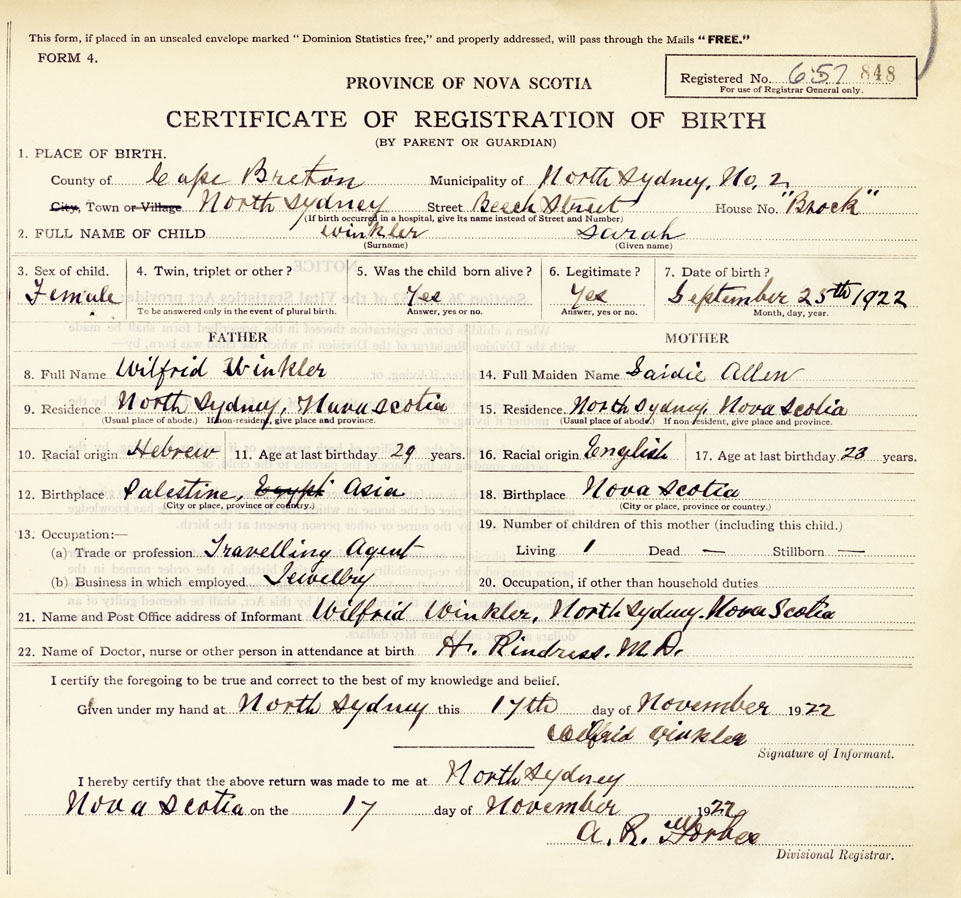 This form, if placed in an unsealed envelope marked "Dominion Statistics free," and properly addressed, will pass through the Mails "FREE."
FORM 4.
Registered No. 657 848
For use of Registrar General only.
PROVINCE OF NOVA SCOTIA
CERTIFICATE OF REGISTRATION OF BIRTH
(BY PARENT OR GUARDIAN)
1. PLACE OF BIRTH.
County of Cape Breton Municipality of North Sydney, No, 2.
City, Town or Village North Sydney Street Beech Street House No. "Brock"
(If birth occurred in a hospital, give its name instead of Street and Number)
2. FULL NAME OF CHILD Winkler Sarah
(Surname) (Given name)
3. Sex of child. 4. Twin, triplet or other? 5. Was the child born alive? 6. Legitimate? 7. Date of birth?
Female Yes Yes September 25th 1922
To be answered only in the event of plural birth. Answer, yes or no. Answer, yes or no. Month, day, year.
FATHER MOTHER
8. Full Name Wilfrid Winkler 14. Full Maiden Name Saidie Allen
9. Residence North Sydney, Nova Scotia 15. Residence North Sydney, Nova Scotia
(Usual place of abode.) If non-resident, give place and province. (Usual place of abode.) If non resident, give place and province.
10. Racial origin Hebrew 11. Age at last birthday 29 years. 16. Racial origin English 17. Age at last birthday 23 years.
12. Birthplace Palestine, Egypt Asia 18. Birthplace Nova Scotia
(City or place, province or country.) (City or place, province or country.)
13. Occupation:— 19. Number of children of this mother (including this child.)
(a) Trade or profession Travelling Agent Living 1 Dead — Stillborn —
(b) Business in which employed Jewellry 20. Occupation, if other than household duties
21. Name and Post Office address of Informant Wilfrid Winkler, North Sydney. Nova Scotia
22. Name of Doctor, nurse or other person in attendance at birth M.D.
I certify the foregoing to be true and correct to the best of my knowledge and belief.
Given under my hand at North Sydney this 17th day of November 1922
Wilfrid Winkler
Signature of Informant.
I hereby certify that the above return was made to me at North Sydney
Nova Scotia on the 17 day of November 1922
A. R. Forbes
Divisional Registrar.